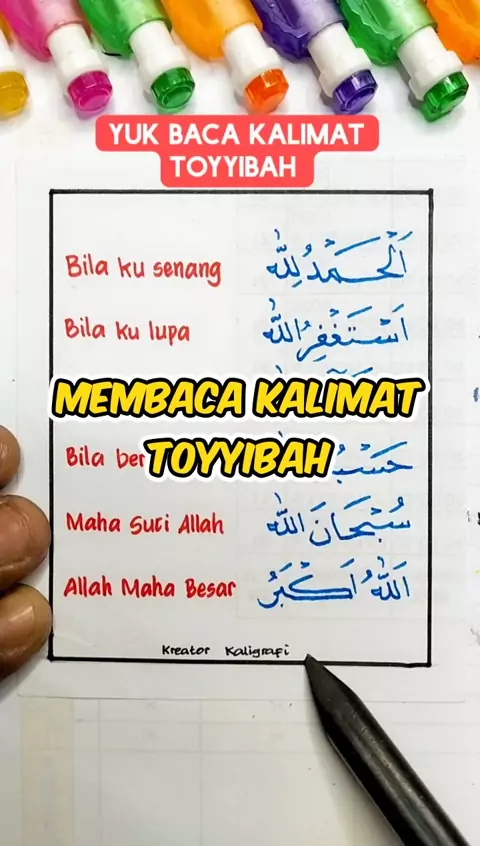 YUK BACA KALIMAT
TOYYIBAH
Bila ku senang اَلْحَمْدُ لِلّٰه
Bila ku lupa اَسْتَغْفِرُ اللّٰه
MEMBACA KALIMAT
TOYYIBAH
Bila
Maha Suci Allah سُبْحَانَ اللّٰه
Allah Maha Besar اَللّٰهُ اَكْبَرُ
Kreator Kaligrafi